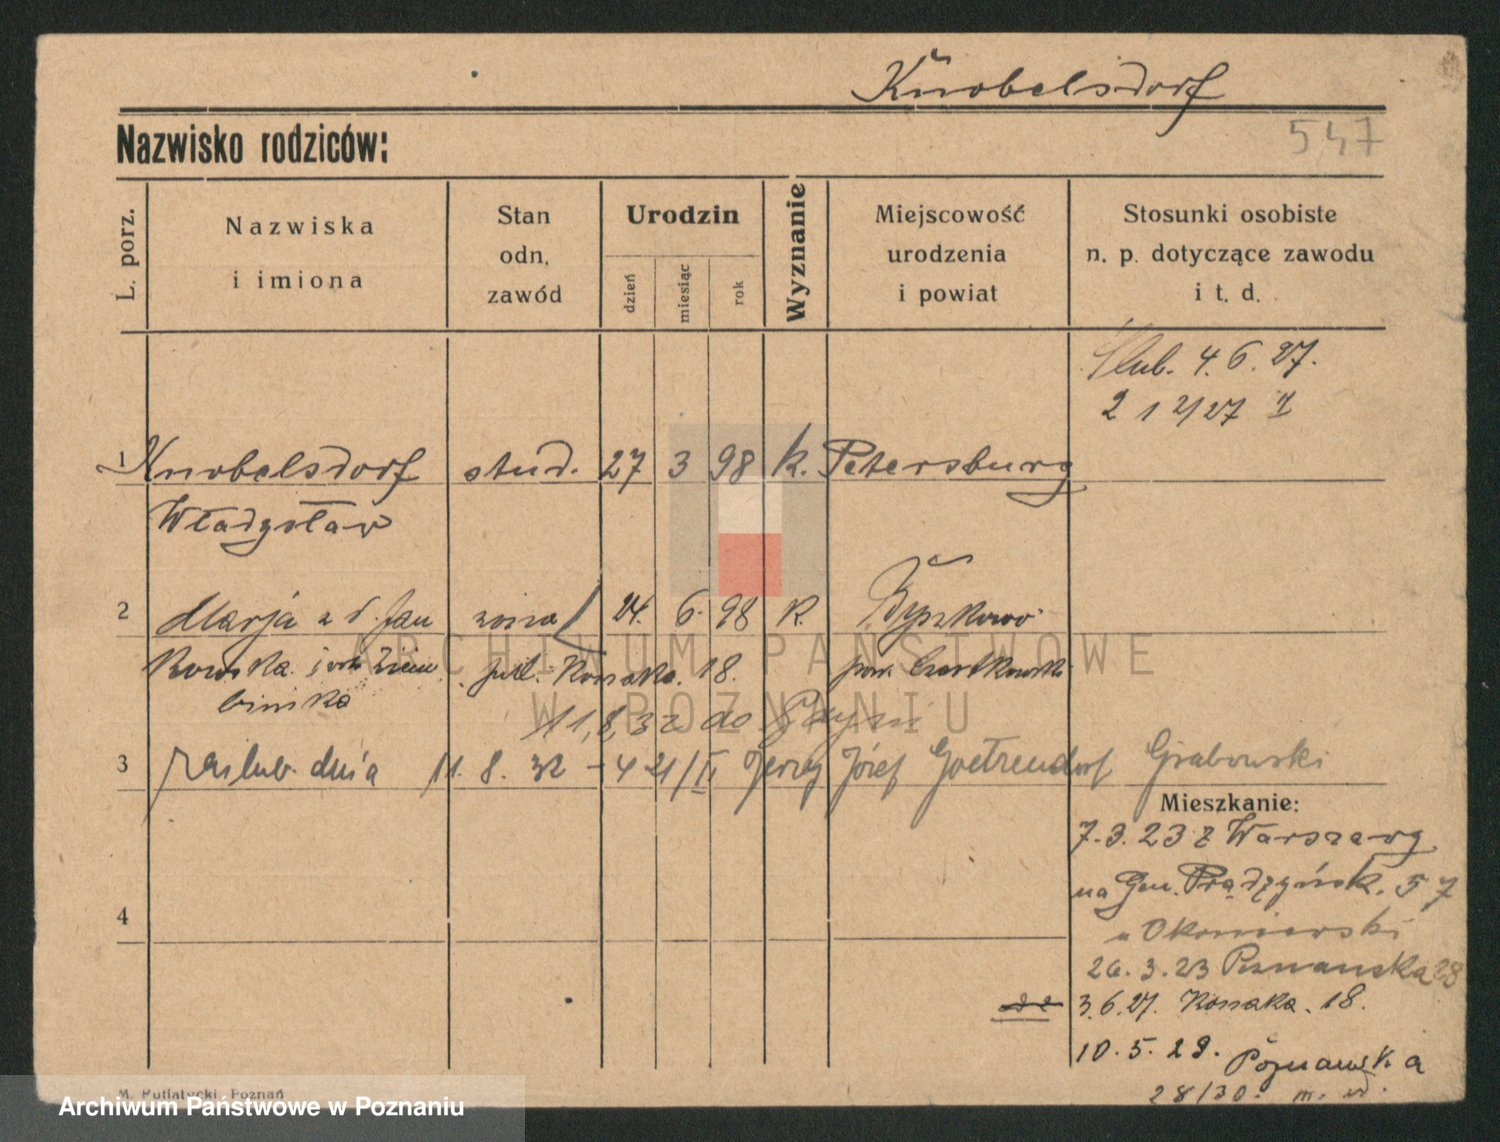 Knobelsdorf
Nazwisko rodziców:
547
L. porz.
Nazwiska
i imiona
Stan
odn.
zawód
Urodzin
dzień
miesiąc
rok
Wyznanie
Miejscowość
urodzenia
i powiat
Stosunki osobiste
n. p. dotyczące zawodu
i t. d.
Ślub. 4. 6. 27.
2 1 2/27 II
1 Knobelsdorf stud. 27 3 98 k. Petersburg
Władysław
2 Marja z d. Jan żona 24. 6. 98 k. Byszkowo
kowska pow. Czartkowski
binska
jull. Kossaka. 18.
11,8,32 do Gdyni
3 zaślub. dnia 11. 8. 32 - 421/II Jerzy Józef Goetzendorf Grabowski
Mieszkanie:
7. 3. 23 z Warszawy
na Gen. Prądzyńsk. 57
u Okoniewski
26. 3. 23 Poznanska 28
3. 6. 27. Kossaka. 18.
10. 5. 29. Poznanska
28/30. m.
4
M. Putiatycki, Poznań
ARCHIWUM PAŃSTWOWE
W POZNANIU
Archiwum Państwowe w Poznaniu